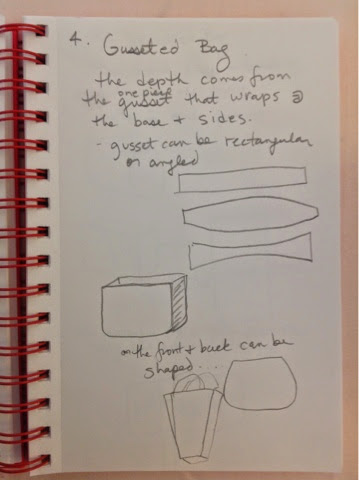 4. Gusseted Bag
the depth comes from
the one piece gusset that wraps @
the base + sides.
- gusset can be rectangular
or angled
or the front + back can be
shaped...